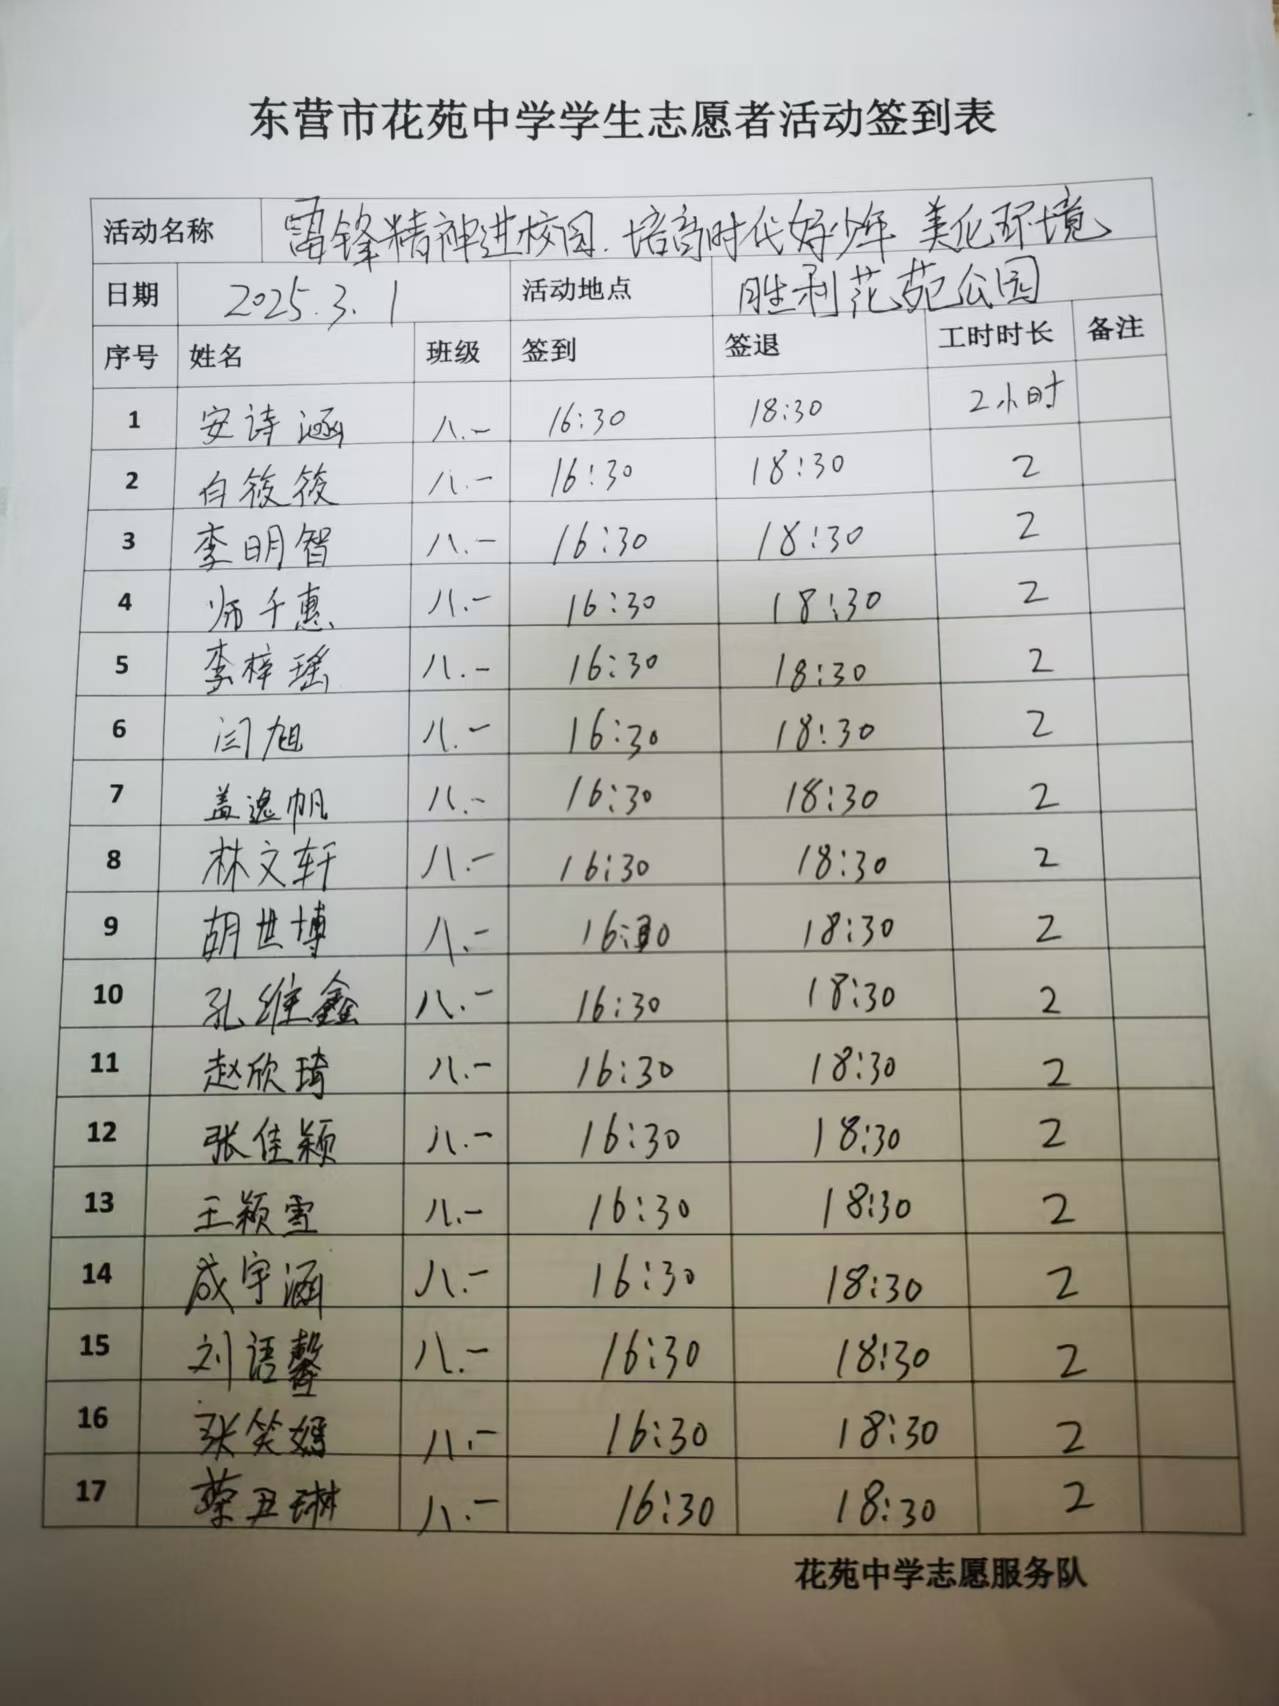 东营市花苑中学学生志愿者活动签到表
活动名称 雷锋精神进校园.培育时代好少年 美化环境
日期 2025.3.1 活动地点 胜利花苑公园
序号 姓名 班级 签到 签退 工时时长 备注
1 安诗涵 八.一 16:30 18:30 2小时
2 白筱筱 八.一 16:30 18:30 2
3 李明智 八.一 16:30 18:30 2
4 师千惠 八.一 16:30 18:30 2
5 李梓瑶 八.一 16:30 18:30 2
6 闫旭 八.一 16:30 18:30 2
7 盖逸帆 八.一 16:30 18:30 2
8 林文轩 八.一 16:30 18:30 2
9 胡世博 八.一 16:30 18:30 2
10 孔维鑫 八.一 16:30 18:30 2
11 赵欣琦 八.一 16:30 18:30 2
12 张佳颖 八.一 16:30 18:30 2
13 王颖雪 八.一 16:30 18:30 2
14 成宇涵 八.一 16:30 18:30 2
15 刘语馨 八.一 16:30 18:30 2
16 张笑嫣 八.一 16:30 18:30 2
17 八.一 16:30 18:30 2
花苑中学志愿服务队